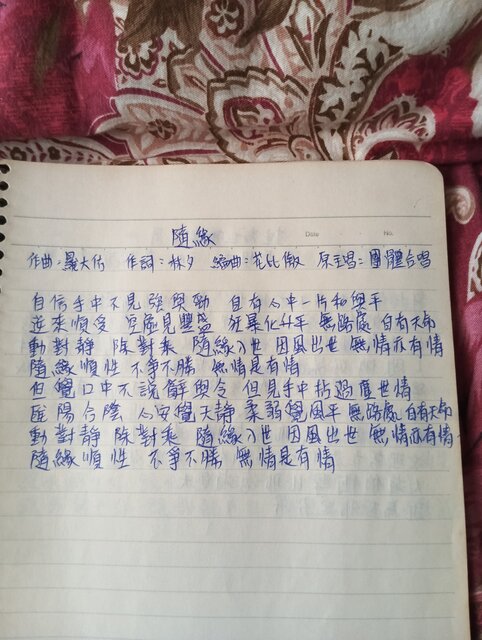 隨緣
Date
No.
作曲:羅大佑 作詞:林夕 編曲:花比傲 原主唱:團體合唱
自信手中不見強與勁 自有心中一片和與平
逆來順受 空虛見豐盛 狂暴化升平 無路處 自有天命
動對靜 除對乘 隨緣入世 因風出世 無情亦有情
隨緣順性 不爭不勝 無情是有情
但覺口中不說僻與令 但見手中拈過塵世情
陽合陰 人安覺天靜 柔弱覺風平 無路處 自有天命
動對靜 除對乘 隨緣入世 因風出世 無情亦有情
隨緣順性 不爭不勝 無情是有情